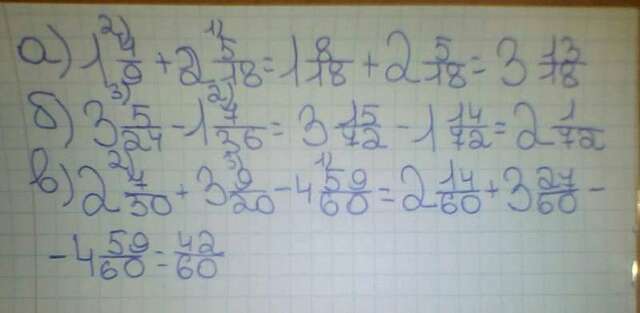 а) 1 4/9 + 2 5/18 = 1 8/18 + 2 5/18 = 3 13/18
б) 3 5/24 - 1 7/36 = 3 15/72 - 1 14/72 = 2 1/72
в) 2 7/30 + 3 9/20 - 4 59/60 = 2 14/60 + 3 27/60 -
- 4 59/60 = 42/60